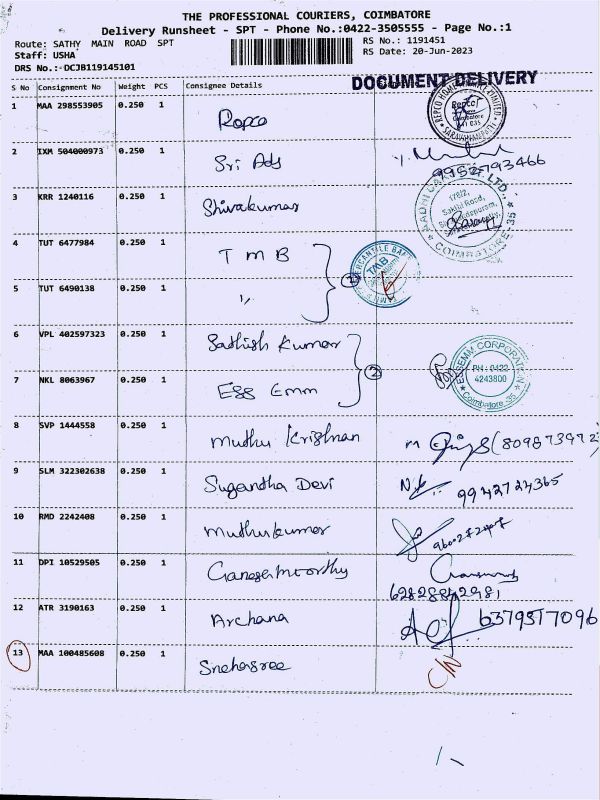 THE PROFESSIONAL COURIERS, COIMBATORE
Delivery Runsheet - SPT - Phone No.:0422-3505555 - Page No.:1
Route: SATHY MAIN ROAD SPT
RS No.: 1191451
Staff: USHA
RS Date: 20-Jun-2023
DRS No.:-DCJB119145101
DOCUMENT DELIVERY
S No Consignment No Weight PCS Consignee Details
1 MAA 298553905 0.250 1 Repco
2 IXM 504000973 0.250 1 Sri Ads 9952793466
3 KRR 1240116 0.250 1 Shivakumar
4 TUT 6477984 0.250 1 TMB
5 TUT 6490138 0.250 1 〃 2
6 VPL 402597323 0.250 1 Sathish Kumar
7 NKL 8063967 0.250 1 Ess Emm 2
ESSEMM CORPORATION
PH : 0422
4243800
Coimbatore-35
8 SVP 1444558 0.250 1 Muthu Krishnan
9 SLM 322302638 0.250 1 Sugantha Devi 9942724365
10 RMD 2242408 0.250 1 Muthukumar
11 DPI 10529505 0.250 1 Ganesh moorthy
12 ATR 3190163 0.250 1 Archana 6379517096
13 MAA 100485608 0.250 1 Snehasree